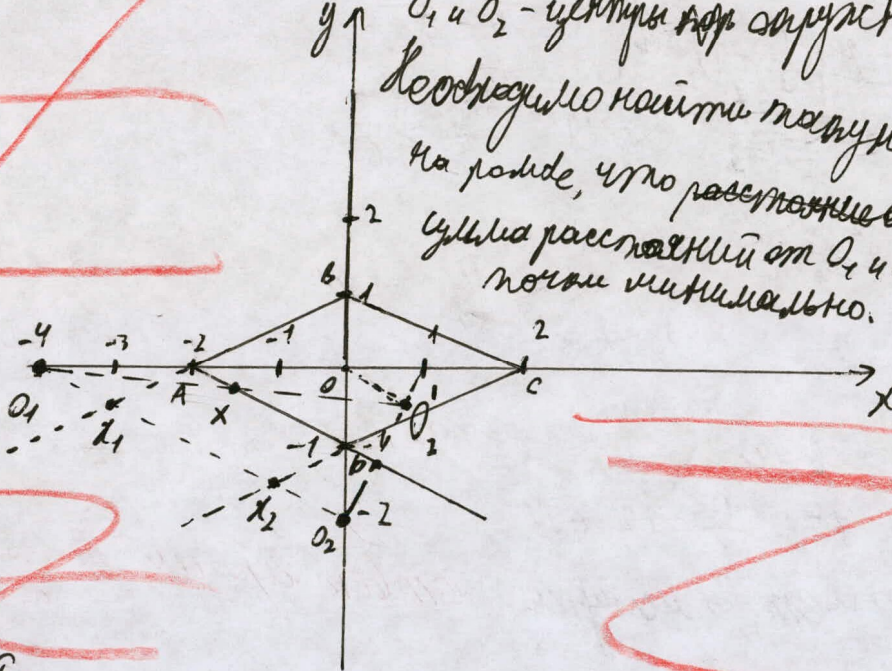 O₁ и O₂ - центры окружн
Необходимо найти такую
на ромбе, что расстояние
сумма расстояний от O₁ и
точки минимально.
y
2
B
1
-4
-3
-2
-1
O
1
2
A
C
x
O₁
X
X₁
O₂'
-1
D
X₂
O₂
-2